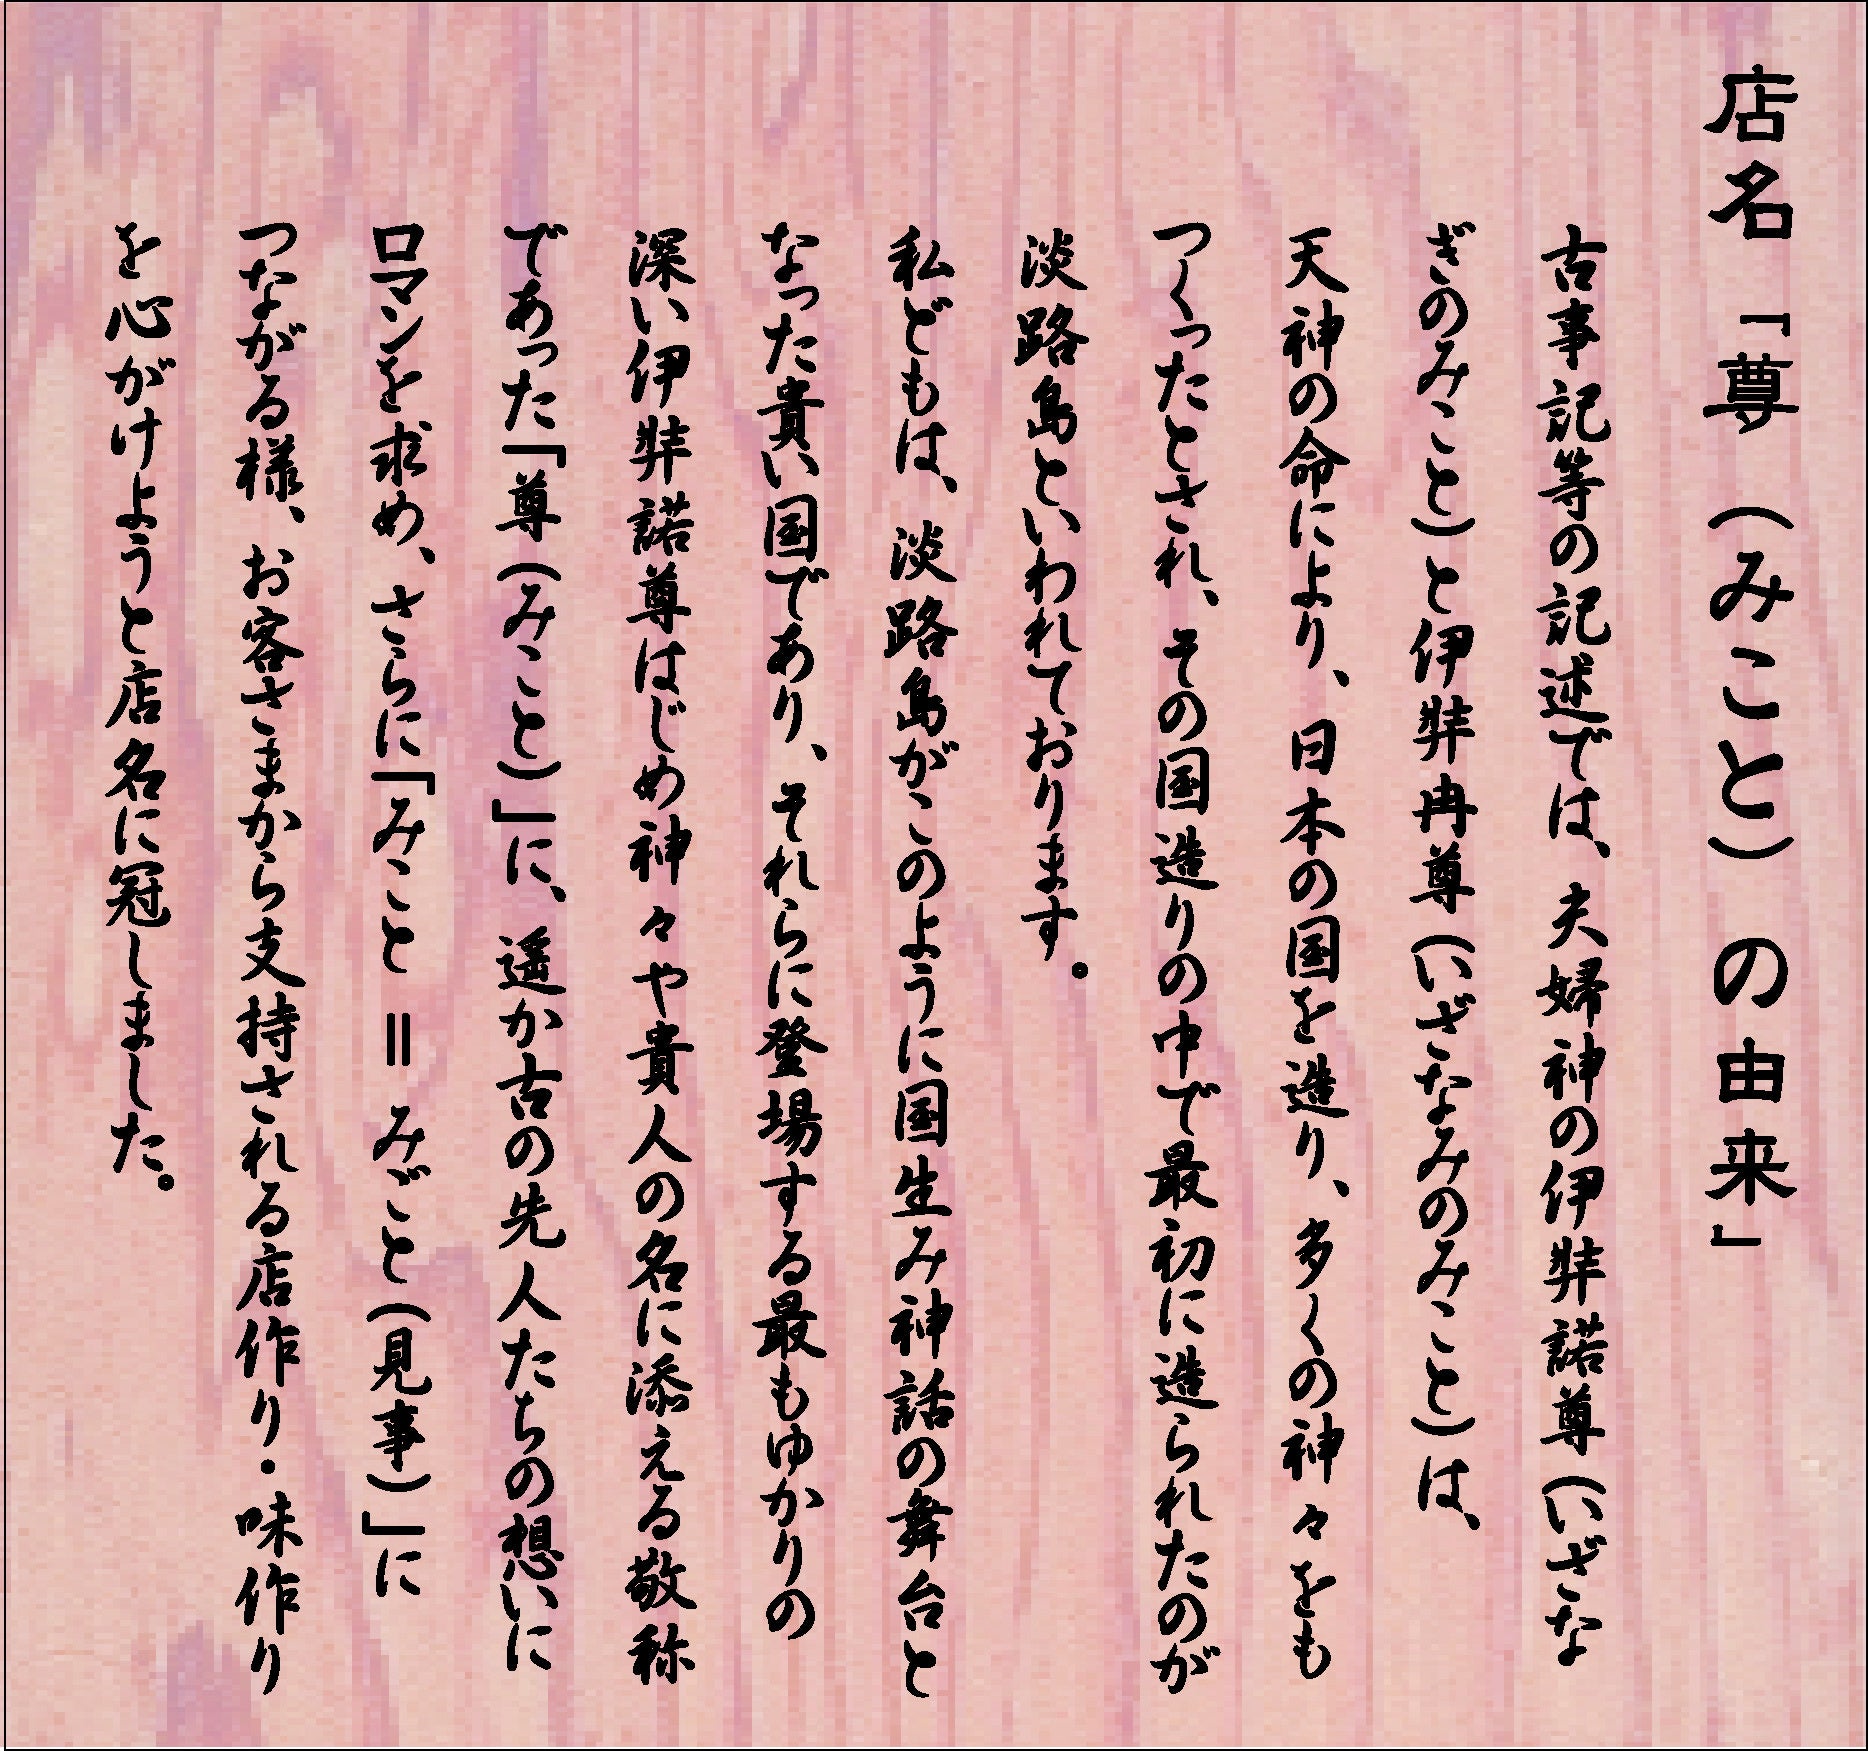 店名「尊（みこと）の由来」
古事記等の記述では、夫婦神の伊弉諾尊（いざな
ぎのみこと）と伊弉冉尊（いざなみのみこと）は、
天神の命により、日本の国を造り、多くの神々をも
つくったとされ、その国造りの中で最初に造られたのが
淡路島といわれております。
私どもは、淡路島がこのように国生み神話の舞台と
なった貴い国であり、それらに登場する最もゆかりの
深い伊弉諾尊はじめ神々や貴人の名に添える敬称
であった「尊（みこと）」に、遥か古の先人たちの想いに
ロマンを求め、さらに「みこと＝みごと（見事）」に
つながる様、お客さまから支持される店作り・味作り
を心がけようと店名に冠しました。